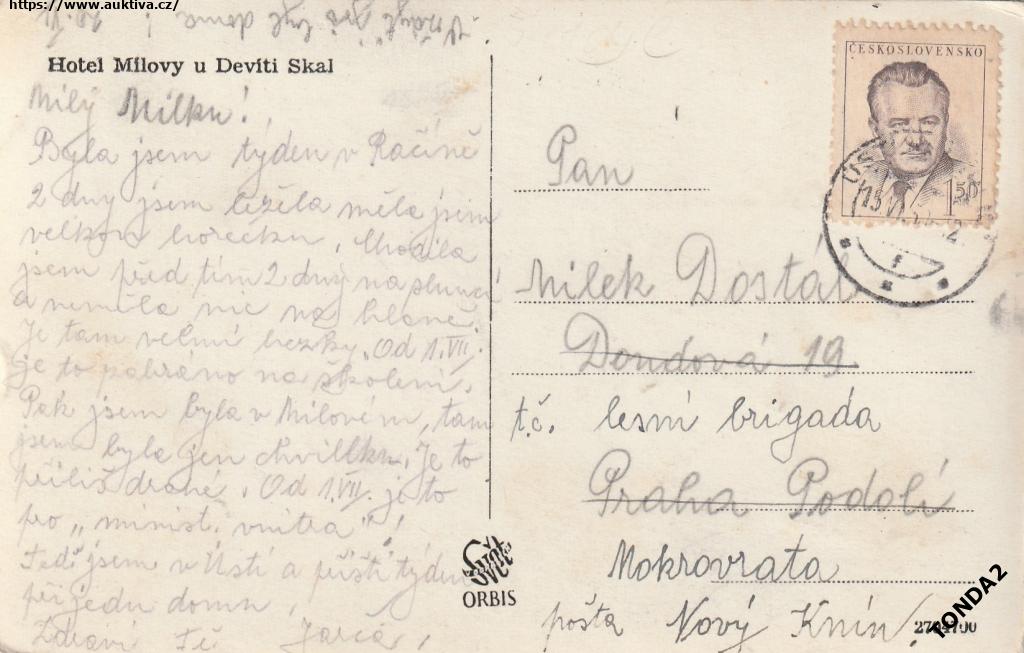 https://www.auktiva.cz/
Hotel Milovy u Devíti Skal
Milý Milku!
Byla jsem týden v Račíně
2 dny jsem ležela měla jsem
velkou horečku. Chodila
jsem před tím 2 dny na slunci
a neměla nic na hlavě.
Je tam velmi hezky. Od 1.VII.
je to zabráno na školení.
Pak jsem byla v Milovém, tam
jsem byla jen chvilku. Je to
příliš drahé. Od 1.VII. je to
pro „minist. vnitra"!
Teď jsem v Ústí a příští týden
přijedu domu.
Zdraví Tě Jarča.
ČESKOSLOVENSKO
1.50
Pan
Milek Dostál
Dondová 19
t.č. lesní brigada
Praha Podolí
Mokrovrata
pošta Nový Knín!
Svět
ORBIS
TONDA2